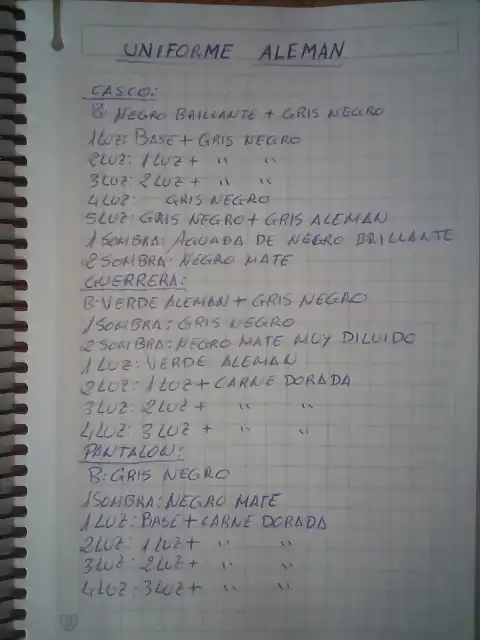 UNIFORME ALEMAN
CASCO:
B: NEGRO BRILLANTE + GRIS NEGRO
1 LUZ: BASE + GRIS NEGRO
2 LUZ: 1 LUZ + " "
3 LUZ: 2 LUZ + " "
4 LUZ: GRIS NEGRO
5 LUZ: GRIS NEGRO + GRIS ALEMAN
1 SOMBRA: AGUADA DE NEGRO BRILLANTE
2 SOMBRA: NEGRO MATE
GUERRERA:
B: VERDE ALEMAN + GRIS NEGRO
1 SOMBRA: GRIS NEGRO
2 SOMBRA: NEGRO MATE MUY DILUIDO
1 LUZ: VERDE ALEMAN
2 LUZ: 1 LUZ + CARNE DORADA
3 LUZ: 2 LUZ + " "
4 LUZ: 3 LUZ + " "
PANTALON:
B: GRIS NEGRO
1 SOMBRA: NEGRO MATE
1 LUZ: BASE + CARNE DORADA
2 LUZ: 1 LUZ + " "
3 LUZ: 2 LUZ + " "
4 LUZ: 3 LUZ + " "